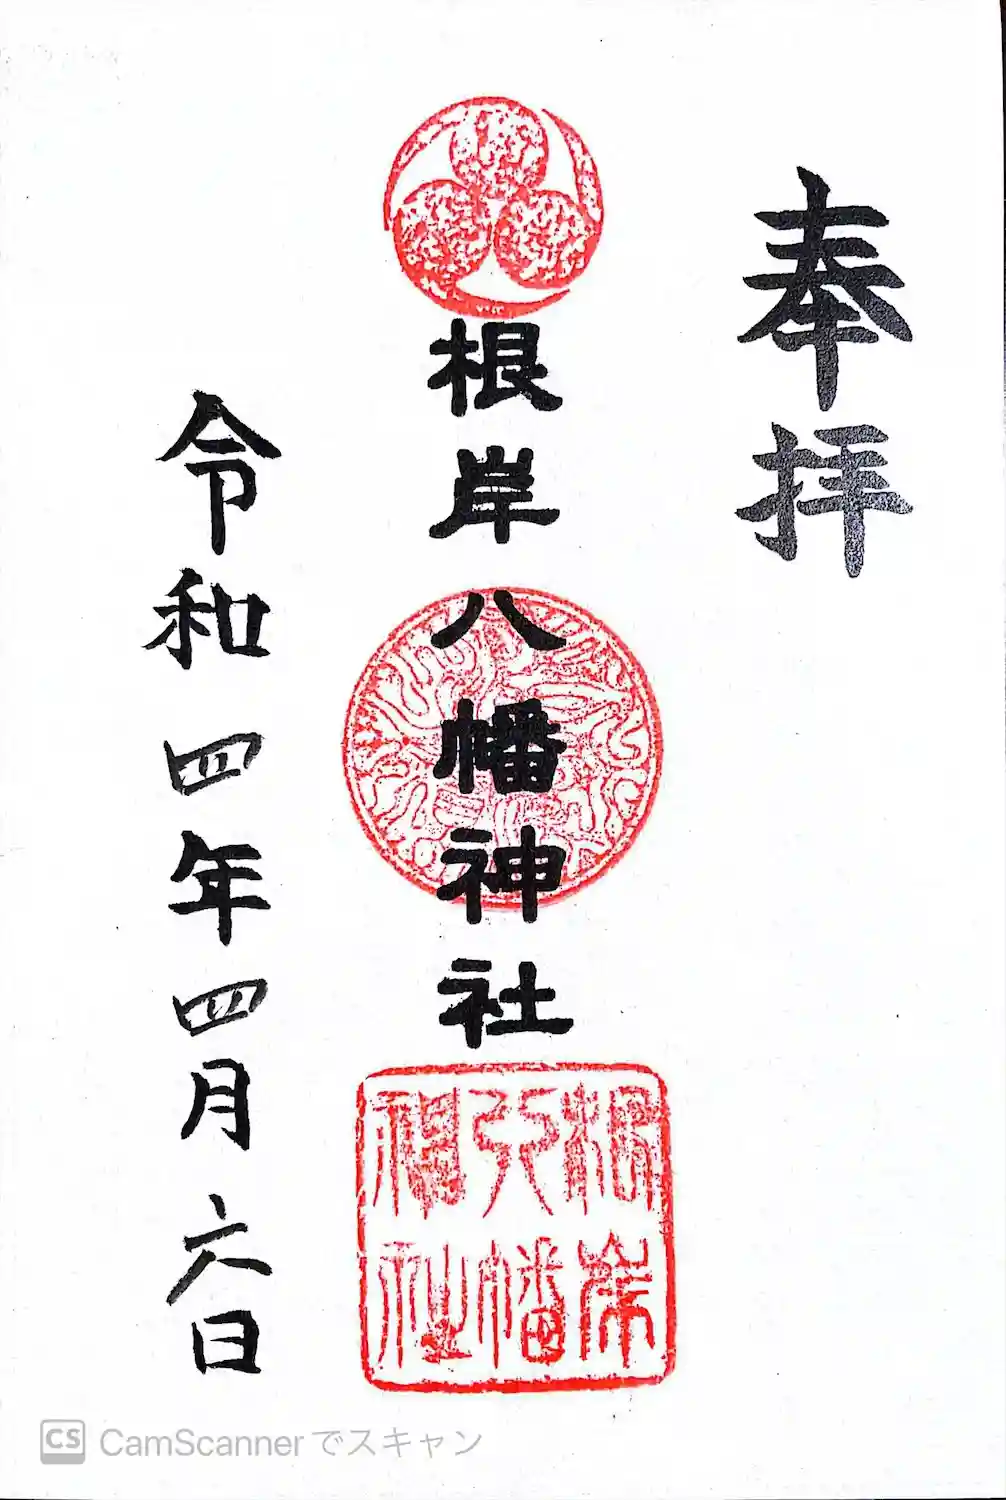 奉拝
根岸八幡神社
令和四年四月六日
根岸
八幡
神社
CS CamScannerでスキャン